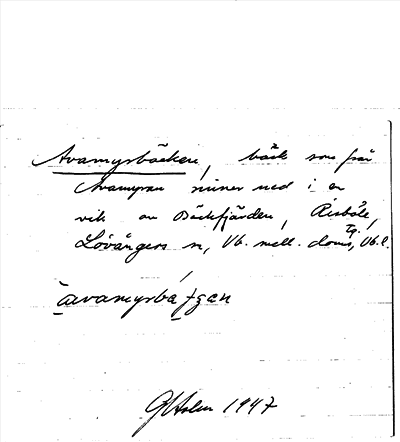 Avamyrbäcken, bäck som från
Avamyran rinner ned i en
vik av Bäckfjärden, Risböle,
Tg.,
Lövångers sn, Vb. mell. doms, Vb. l.
àvamyrbä́ɟgen
G Holm 1947